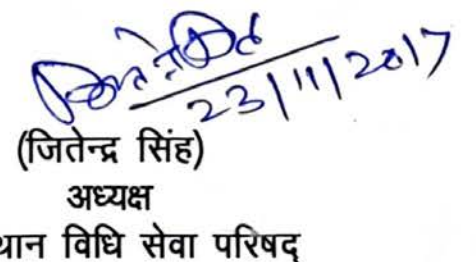 जितेन्द्र सिंह
23/11/2017
(जितेन्द्र सिंह)
अध्यक्ष
थान विधि सेवा परिषद्